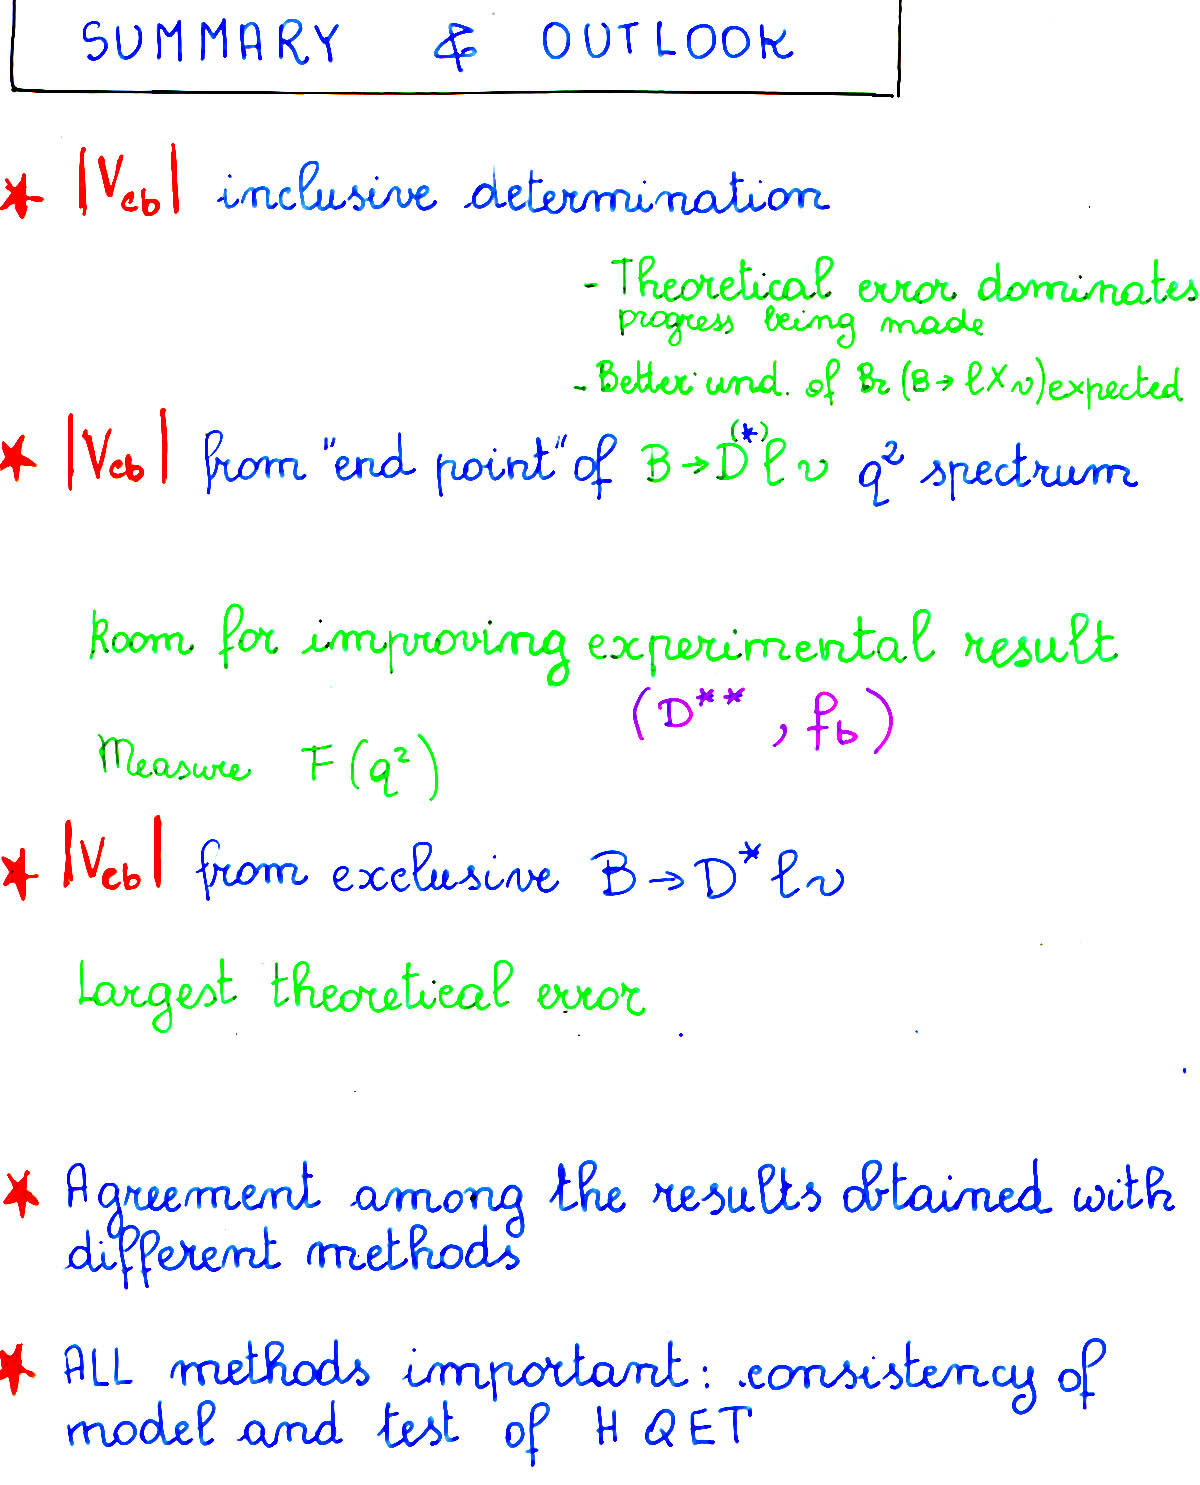 SUMMARY & OUTLOOK
★ |Vcb| inclusive determination
- Theoretical error dominates
progress being made
- Better und. of Br (B→ ℓ X ν) expected
★ |Vcb| from "end point" of B→D(*) ℓ ν q² spectrum
Room for improving experimental result
(D** , fb)
Measure F(q²)
★ |Vcb| from exclusive B→D* ℓ ν
Largest theoretical error
★ Agreement among the results obtained with
different methods
★ ALL methods important: consistency of
model and test of HQET